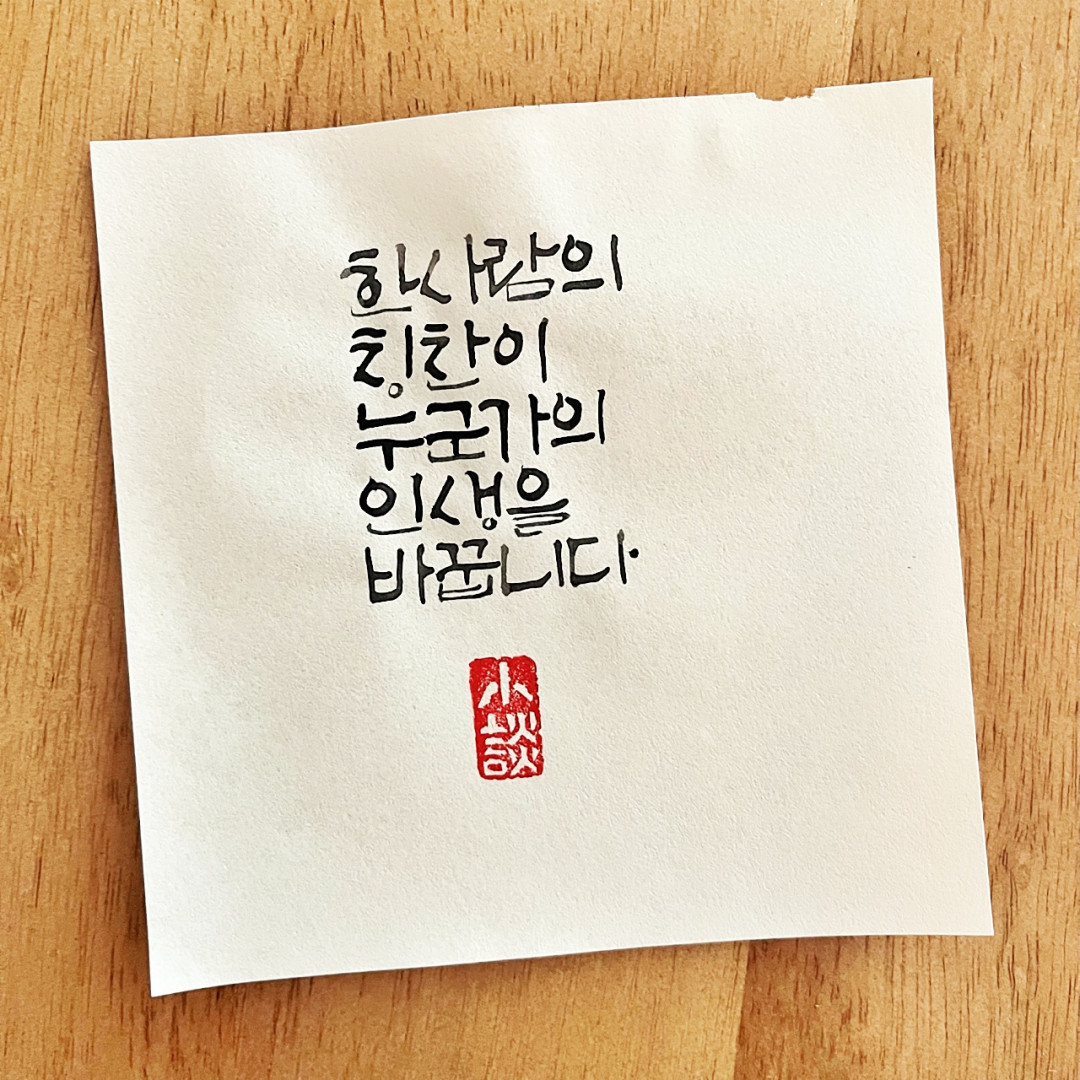 한사람의
칭찬이
누군가의
인생을
바꿉니다.
小談